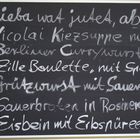 ieba wat jutet, al
icolai Kiezsuppe m
Berliner Currywurst
Zille Boulette, mit Sa
Grützwurst mit Sauer
Sauerbraten in Rosinen
Eisbein mit Erbspüree